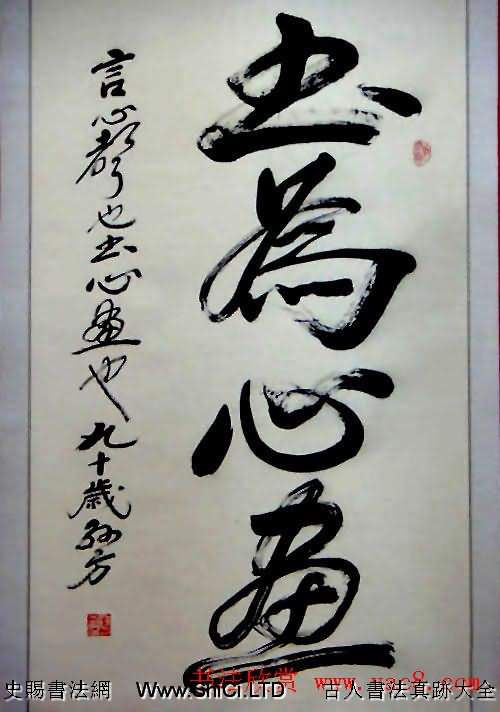 书為心畫
言心聲也书心畫也九十歲孙方
书法欣赏 www.yac8.com
史賜書法網 www.ShiCi.LTD 古人書法真跡大全